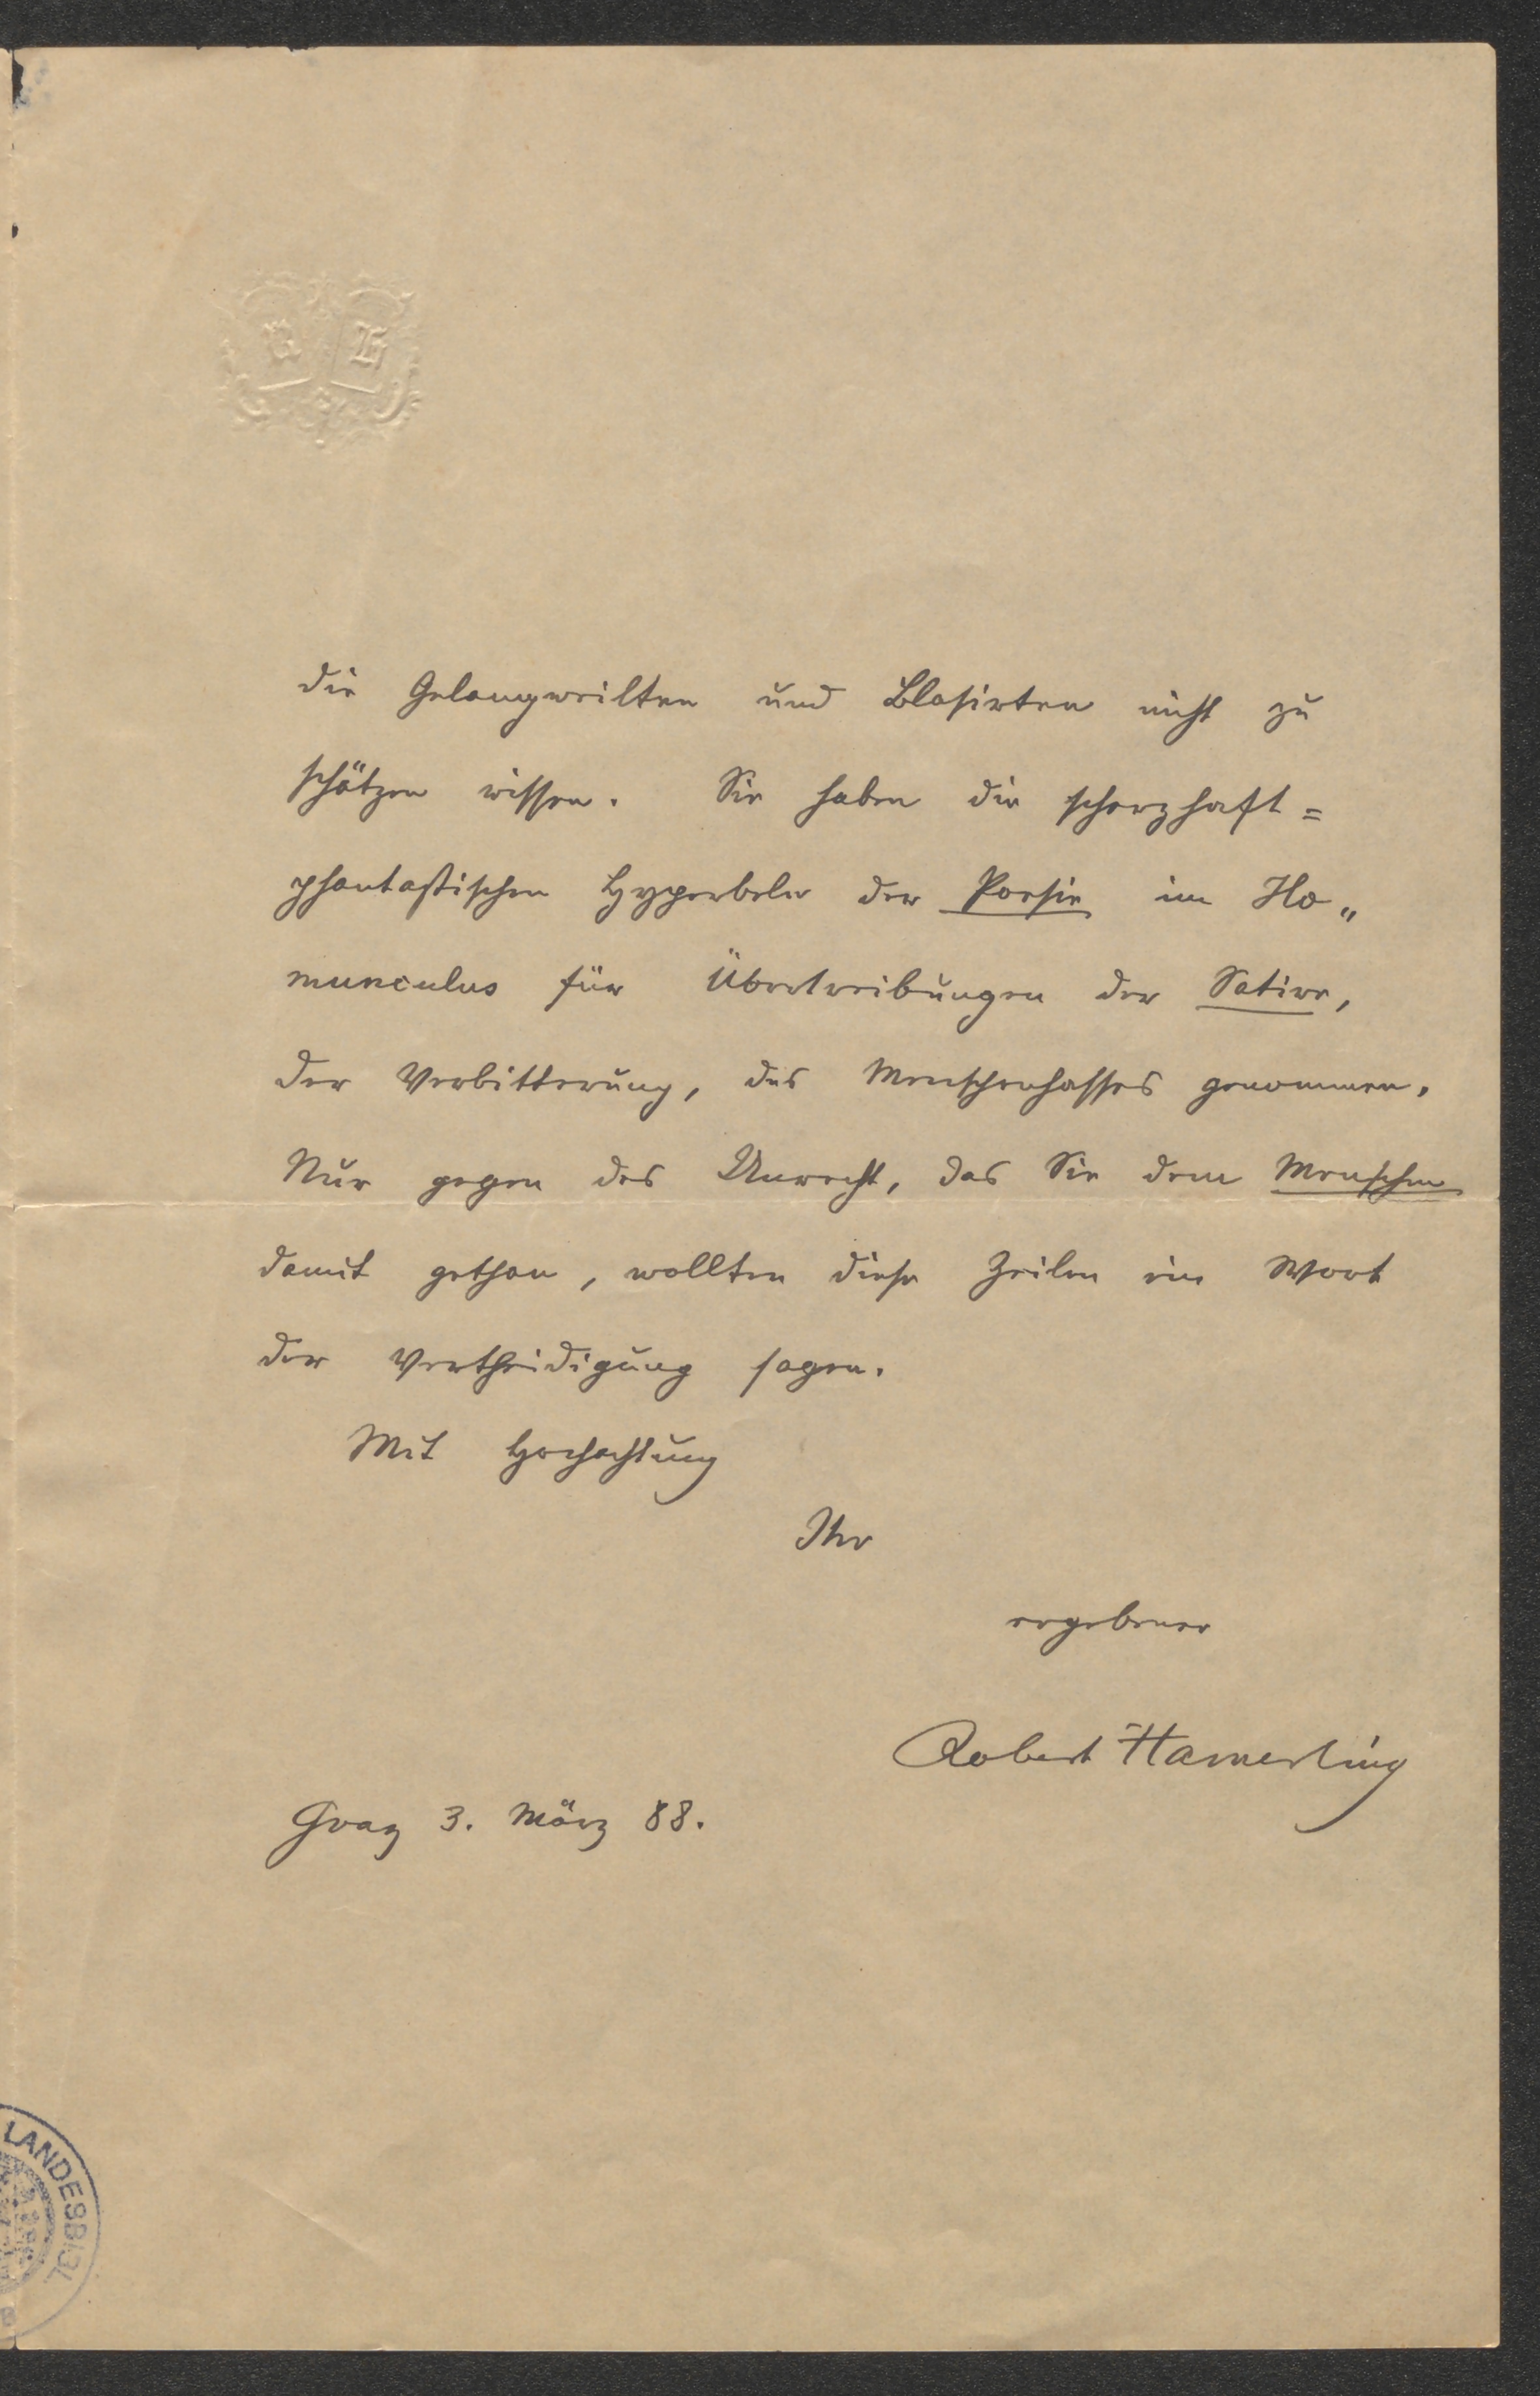 R H
die Gelangweilten und Blasirten nicht zu
schätzen wissen. Sie haben die scherzhaft=
phantastischen Hyperbeln der Poesie im Ho„
munculus für Übertreibungen der Satire,
der Verbitterung, des Menschenhasses genommen.
Nur gegen das Unrecht, das Sie dem Menschen
damit gethan, wollten diese Zeilen ein Wort
der Vertheidigung sagen.
Mit Hochachtung
Ihr
ergebener
Robert Hamerling
Graz 3. März 88.
LANDESBIBL
B